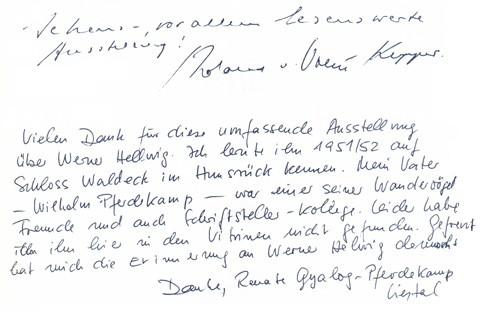 - Sehens-, vor allem lesenswerte
Ausstellung!
Roland u. Doris Kepper.
Vielen Dank für diese umfassende Ausstellung
über Werner Hellwig. Ich lernte ihn 1951/52 auf
Schloss Waldeck im Hunsrück kennen. Mein Vater
– Wilhelm Pferdekamp – war einer seiner Wandervögel
Freunde und auch Schriftsteller-Kollege. Leider habe
ich ihn hier in den Vitrinen nicht gefunden. Gefreut
hat mich die Erinnerung an Werner Helwig dennoch
Danke, Renate Gyalog-Pferdekamp
Liestal